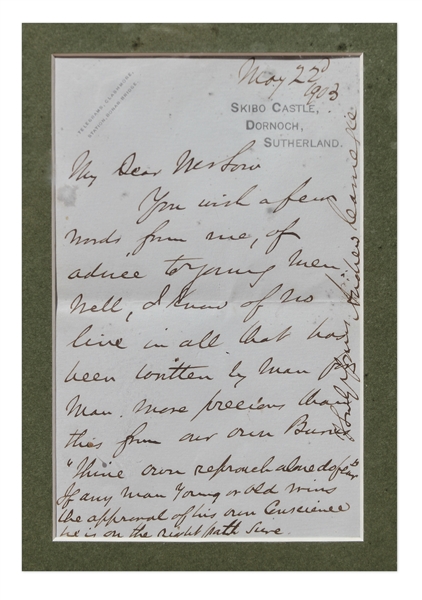 May 22d
1903
SKIBO CASTLE,
DORNOCH,
SUTHERLAND.
My Dear
You wish a few
words from me, of
advice to young Men
Well, I know of no
line in all that has
been written by Man for
Man more precious than
this from our own Burns
"Thine own reproach alone do fear"
If any Man Young or old wins
the approval of his own Conscience
he is on the right path sure
Yours Andrew Carnegie